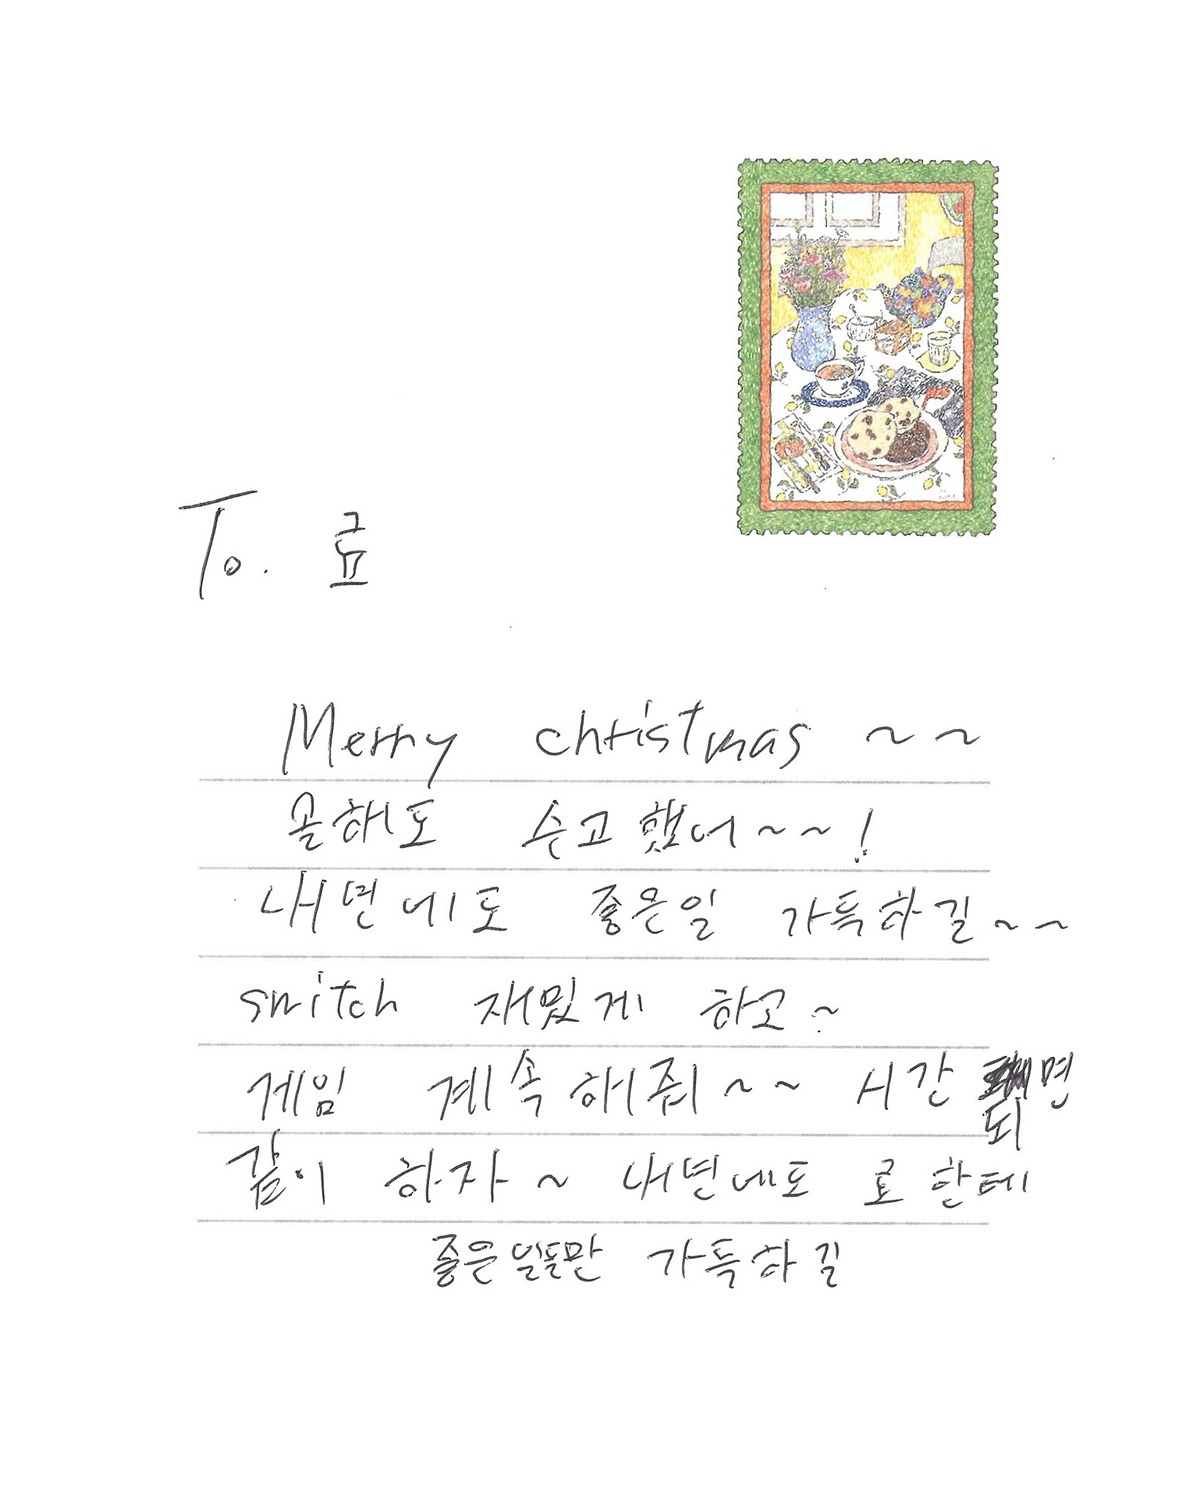 To. 료
Merry christmas ~~
올해도 수고했어~~!
내년에도 좋은일 가득하길~~
switch 재밌게 하고~
게임 계속해줘~~ 시간 되면
같이 하자~ 내년에도 료한테
좋은일들만 가득하길